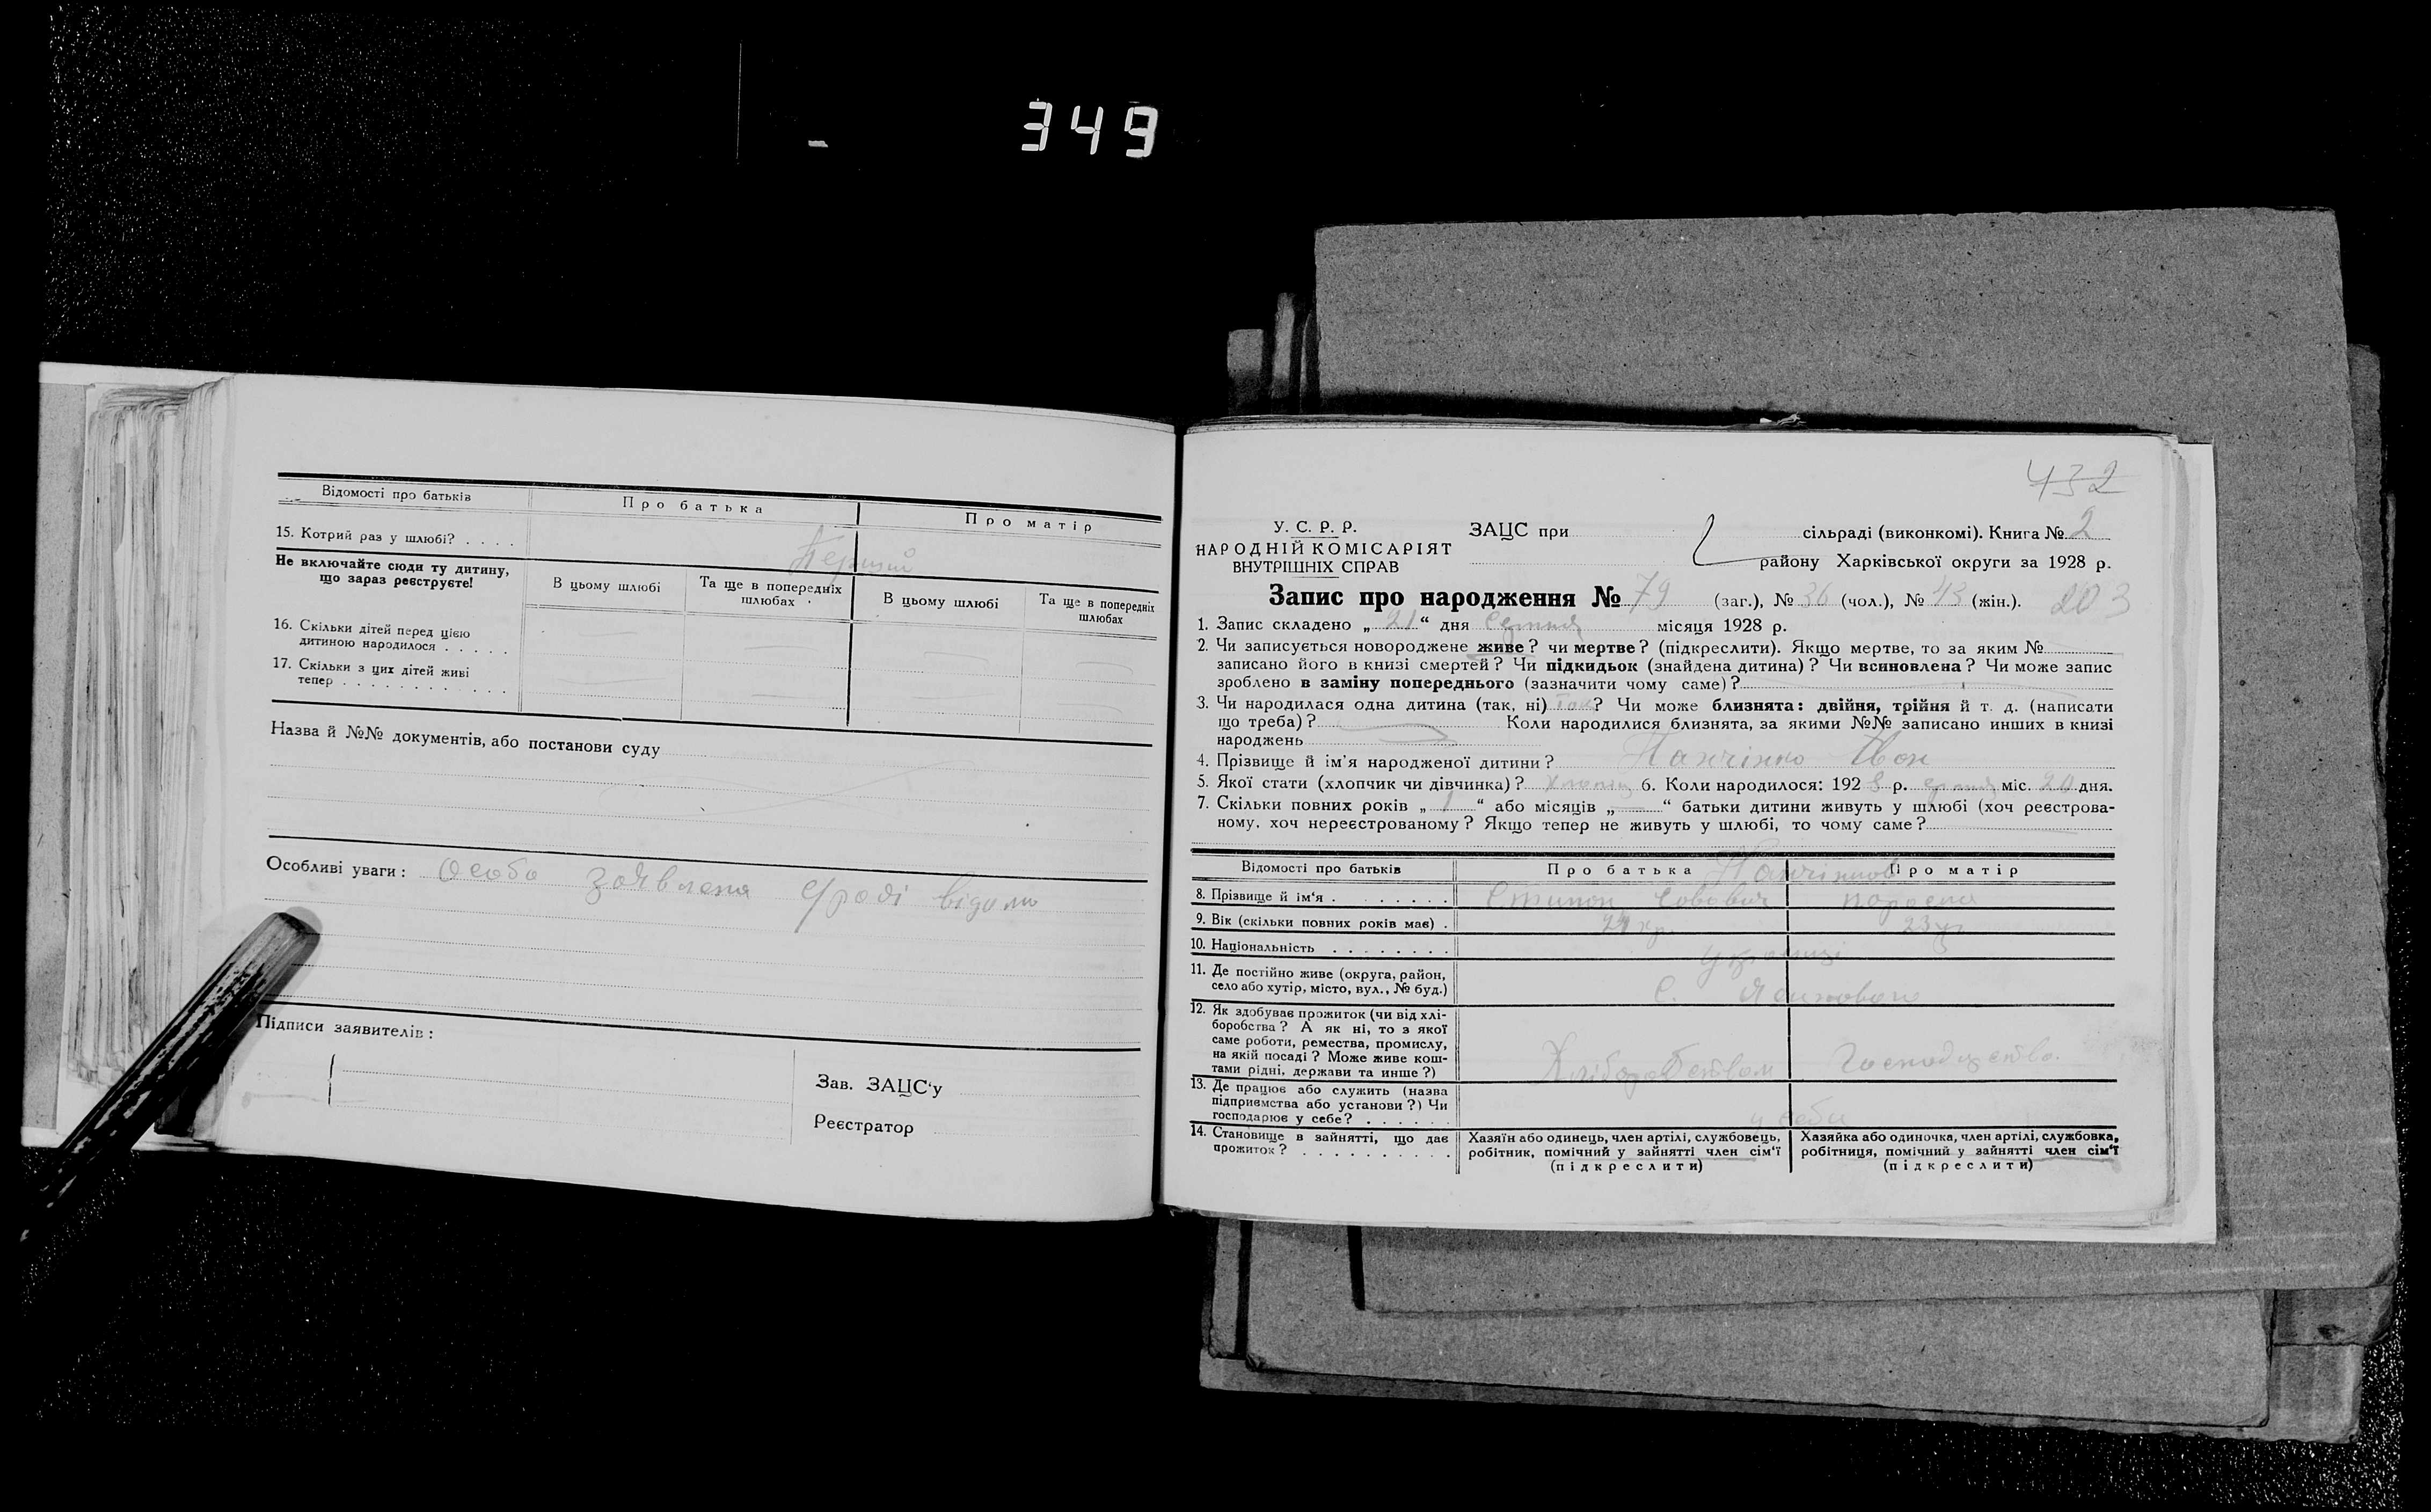 349
Відомості про батьків
Про батька
Про матір
15. Котрий раз у шлюбі? . . . .
Перший
Не включайте сюди ту дитину,
що зараз реєструєте!
В цьому шлюбі
Та ще в попередніх
шлюбах
В цьому шлюбі
Та ще в попередніх
шлюбах
16. Скільки дітей перед цією
дитиною народилося . . . . .
17. Скільки з цих дітей живі
тепер . . . . . . . . . . . .
Назва й №№ документів, або постанови суду
Особливі уваги: Особа заявлена
Підписи заявителів:
Зав. ЗАЦС'у
Реєстратор
432
У. С. Р. Р.
НАРОДНІЙ КОМІСАРІЯТ
ВНУТРІШНІХ СПРАВ
ЗАЦС при
сільраді (виконкомі). Книга № 2
району Харківської округи за 1928 р.
Запис про народження № 79 (заг.), № 36 (чол.), № 43 (жін.). 203
1. Запис складено „ 21 “ дня Серпня місяця 1928 р.
2. Чи записується новороджене живе? чи мертве? (підкреслити). Якщо мертве, то за яким №
записано його в книзі смертей? Чи підкидьок (знайдена дитина)? Чи всиновлена? Чи може запис
зроблено в заміну попереднього (зазначити чому саме)?
3. Чи народилася одна дитина (так, ні) так? Чи може близнята: двійня, трійня й т. д. (написати
що треба)? Коли народилися близнята, за якими №№ записано инших в книзі
народжень
4. Прізвище й ім'я народженої дитини?
5. Якої стати (хлопчик чи дівчинка)? хлопец 6. Коли народилося: 1928 р. серпня міс. 20 дня.
7. Скільки повних років „ 1 “ або місяців „ “ батьки дитини живуть у шлюбі (хоч реєстрова-
ному, хоч нереєстрованому? Якщо тепер не живуть у шлюбі, то чому саме?
Відомості про батьків
Про батька
Про матір
8. Прізвище й ім'я . . . . . . . .
9. Вік (скільки повних років має) .
24
23
10. Національність . . . . . . . .
українці
11. Де постійно живе (округа, район,
село або хутір, місто, вул., № буд.)
С.
12. Як здобуває прожиток (чи від хлі-
боробства? А як ні, то з якої
саме роботи, ремества, промислу,
на якій посаді? Може живе кош-
тами рідні, держави та инше?)
Хліборобством
13. Де працює або служить (назва
підприємства або установи?) Чи
господарює у себе? . . . . . .
у себе
14. Становище в зайнятті, що дає
прожиток? . . . . . . . . . .
Хазяїн або одинець, член артілі, службовець,
робітник, помічний у зайнятті член сім'ї
(підкреслити)
Хазяйка або одиночка, член артілі, службовка,
робітниця, помічний у зайнятті член сім'ї
(підкреслити)